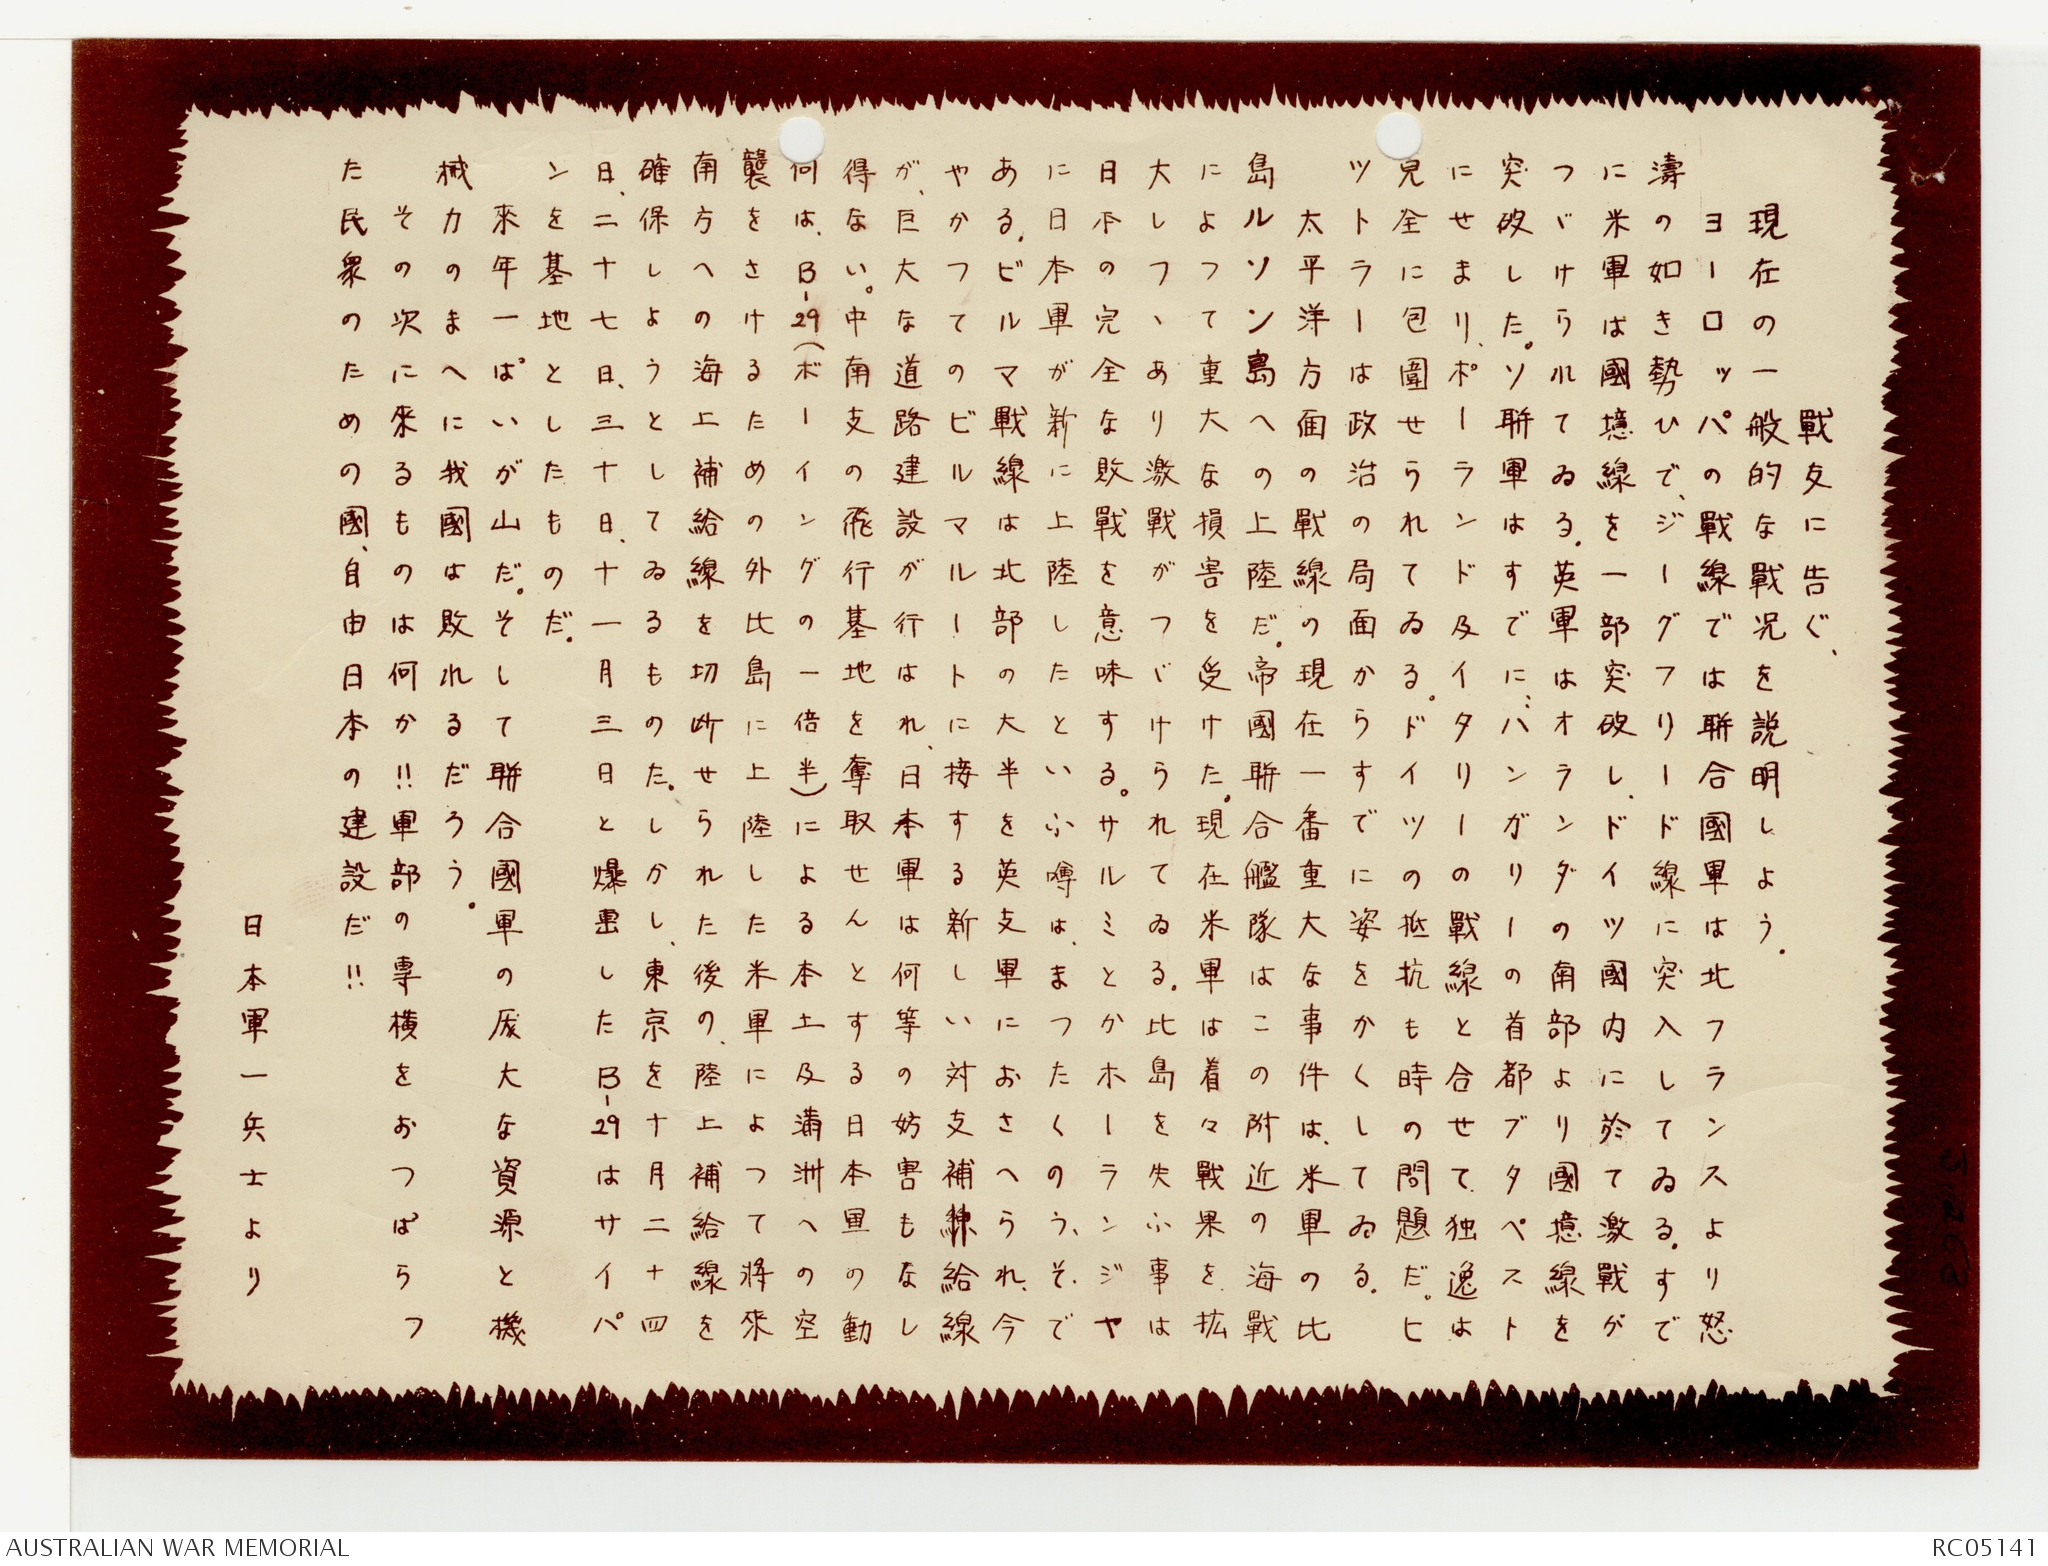 戰友に告ぐ、
現在の一般的な戰況を説明しよう.
ヨーロッパの戰線では聯合國軍は北フランスより怒
濤の如き勢ひで、ジーグフリード線に突入してゐる.すで
に米軍は國境線を一部突破し、ドイツ國内に於て激戰が
つゞけられてゐる.英軍はオランダの南部より國境線を
突破した。ソ聯軍はすでに、ハンガリーの首都ブタペスト
にせまり、ポーランド及イタリーの戰線と合せて、独逸は
完全に包圍せられてゐる。ドイツの抵抗も時の問題だ。ヒ
ットラーは政治の局面からすでに姿をかくしてゐる.
太平洋方面の戰線の現在一番重大な事件は、米軍の比
島ルソン島への上陸だ.帝國聯合艦隊はこの附近の海戰
によつて重大な損害を受けた.現在米軍は着々戰果を拡
大しつゝあり激戰がつゞけられてゐる.比島を失ふ事は
日本の完全な敗戰を意味する。サルミとかホーランジヤ
に日本軍が新に上陸したといふ噂は、まつたくのうそで
ある.ビルマ戰線は北部の大半を英支軍におさへられ、今
やかつてのビルマルートに接する新しい対支補給線
が、巨大な道路建設が行はれ、日本軍は何等の妨害もなし
得ない。中南支の飛行基地を奪取せんとする日本軍の動
何は、B-29(ボーイングの一倍半)による本土及満洲への空
襲をさけるための外比島に上陸した米軍によつて將來
南方への海上補給線を切断せられた後の、陸上補給線を
確保しようとしてゐるものた。しかし、東京を十月二十四
日、二十七日、三十日、十一月三日と爆撃したB-29はサイパ
ンを基地としたものだ.
來年一ぱいが山だ。そして聯合國軍の厖大な資源と機
械力のまへに我國は敗れるだろう.
その次に來るものは何か!!軍部の専横をおつぱらつ
た民衆のための國、自由日本の建設だ!!
日本軍一兵士より
AUSTRALIAN WAR MEMORIAL
RC05141